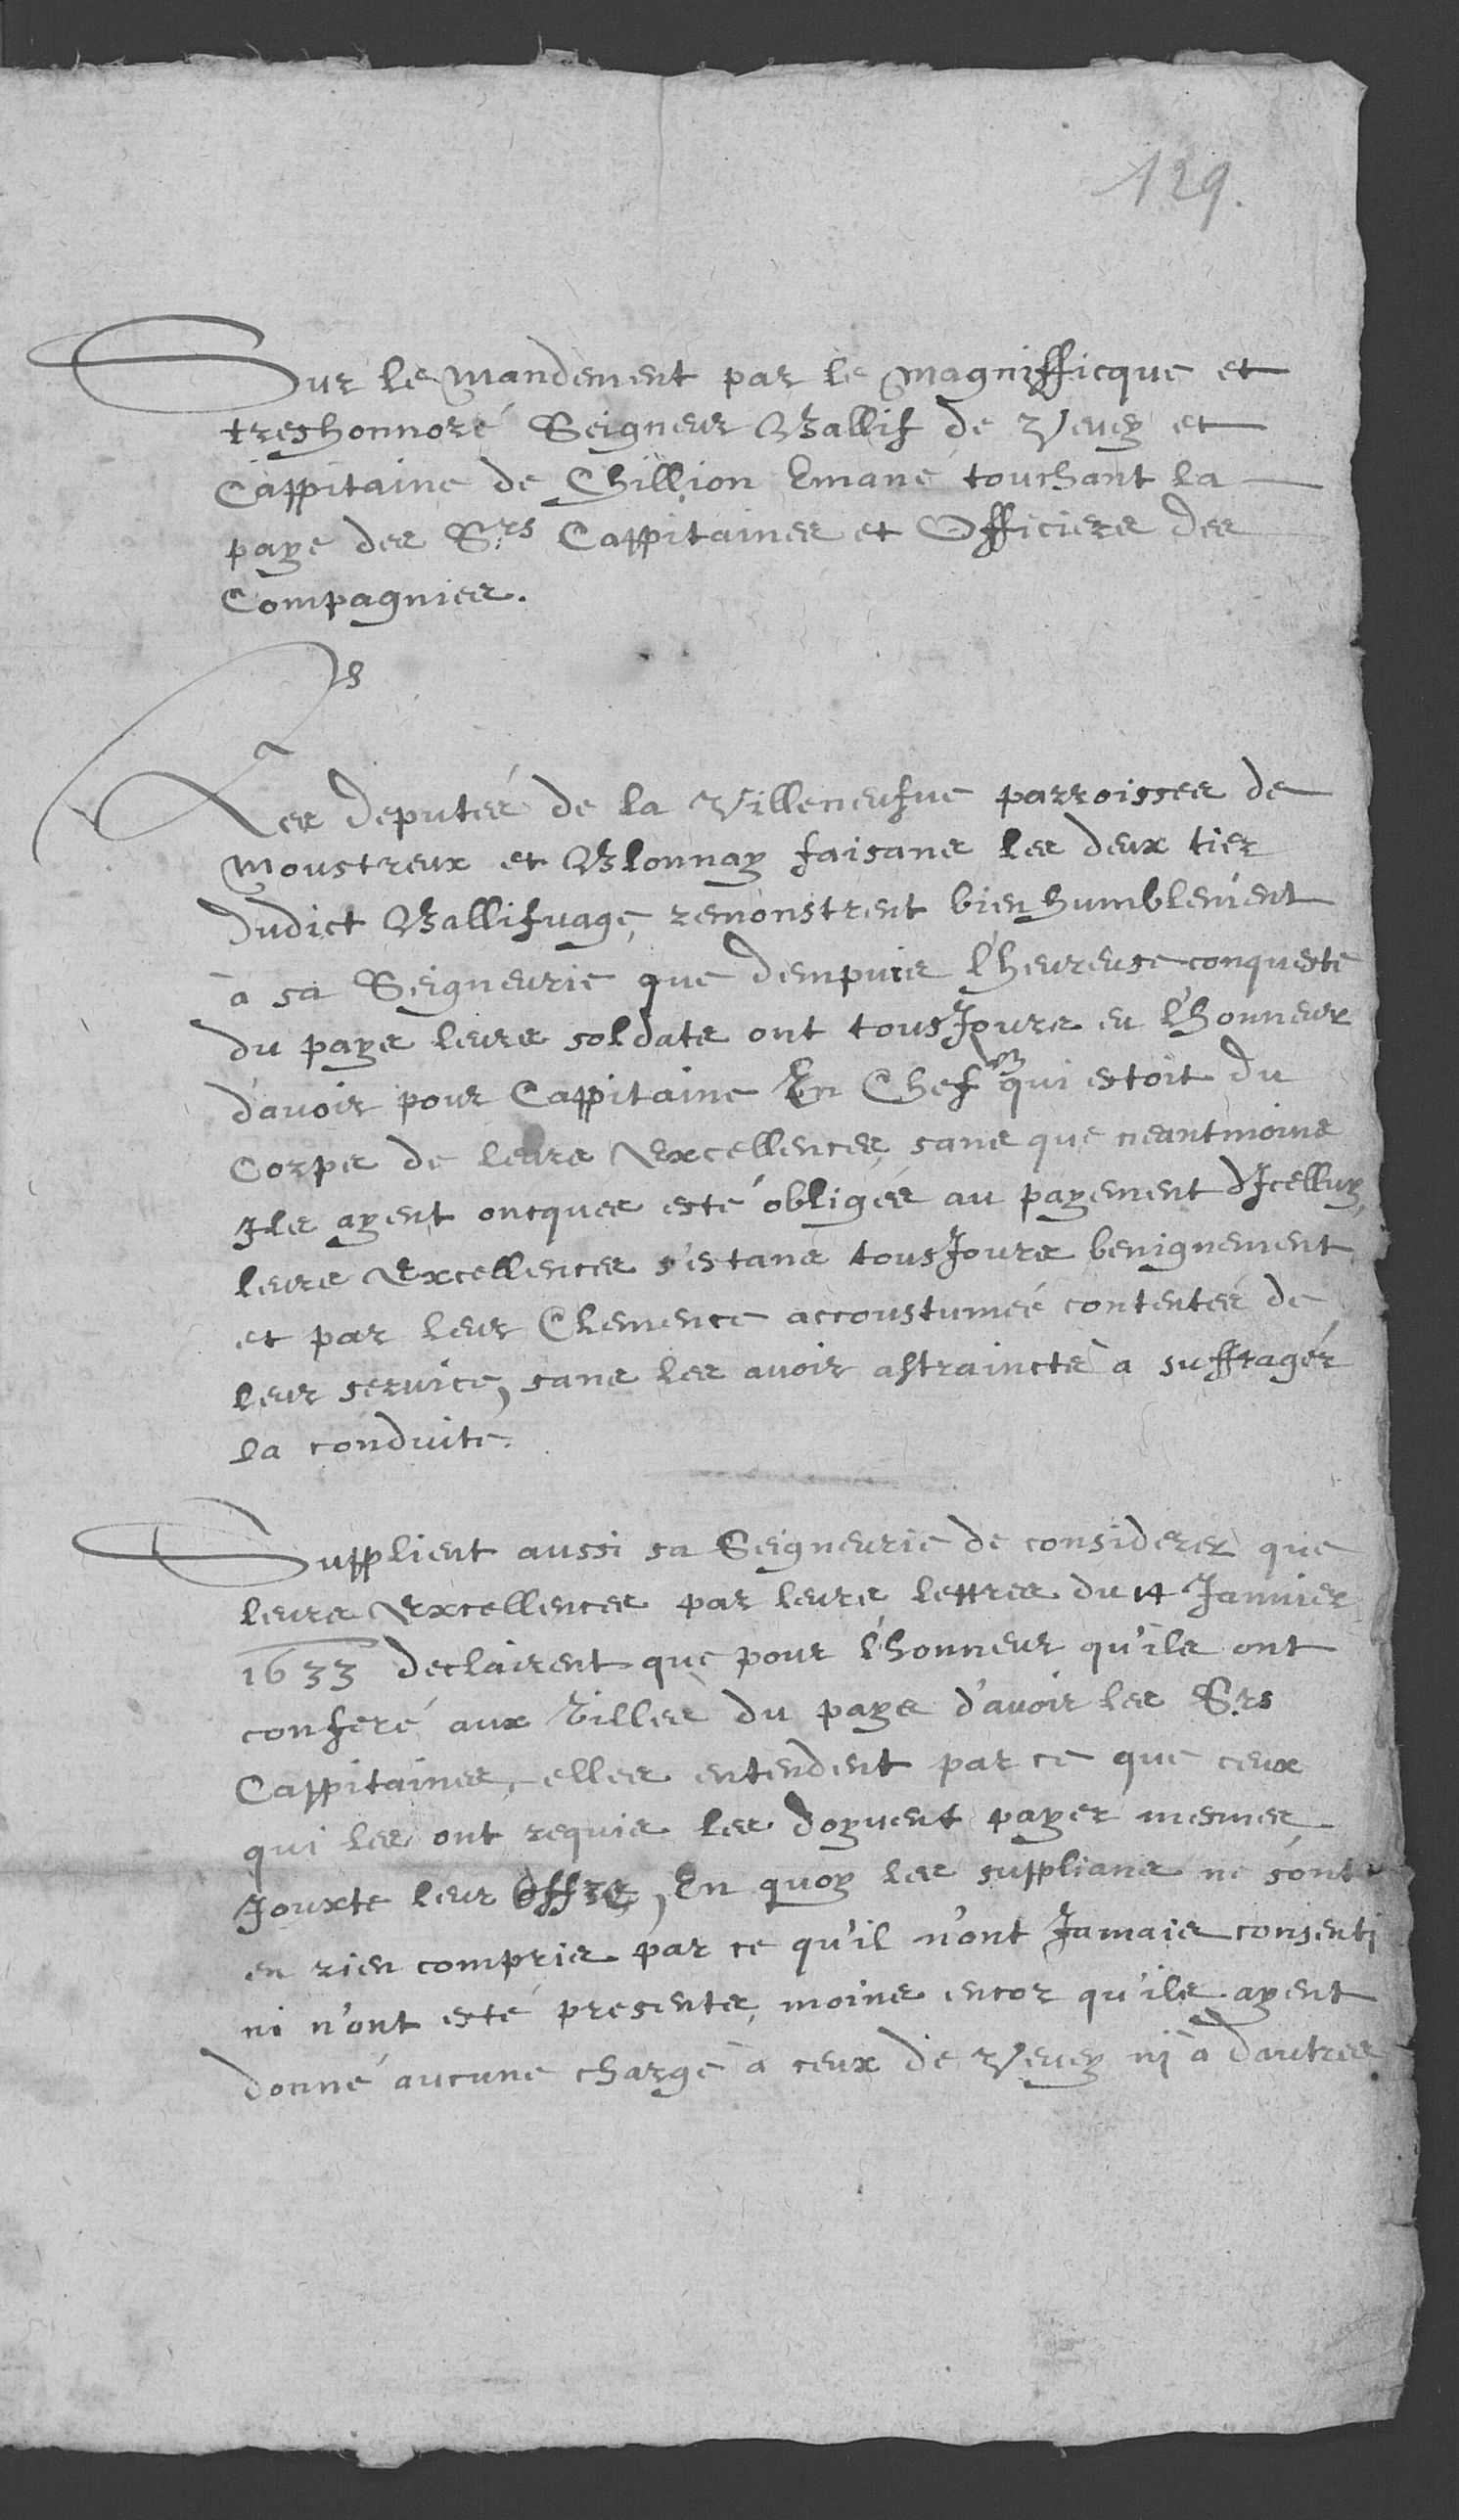 129.
Sur le mandement par le magnifficque et
treshonnoré Seigneur Ballif de Vevey et
Cappitaine de Chillion Emané touchant la
paye des Srs Cappitaines et Officiers des
Compagnies.
Les deputés de la Villeneufve parroisses de
Moustreux et Blonnay faisans les deux tier
dudict Ballifvage, remonstrent bien humblement
à sa Seigneurie que dempuis l'heureuse conqueste
du pays leurs soldats ont tousJours eu l'honneur
d'avoir pour Cappitaine En Chef qui estoit du
Corps de leurs Excellences, sans que neantmoins
Ils ayent oncques esté obligés au payement d'Icelluy,
leurs Excellences s'estans tousJours benignement
et par leur Clemence accoustumée contentés de
leur service, sans les avoir astraincts à suffragér
la conduite.
Supplient aussi sa Seigneurie de considerer que
leurs Excellences par leurs lettres du 14 Januier
1633 declairent que pour l'honneur qu'ils ont
conferé aux Villes du pays d'avoir les Srs
Cappitaines, elles entendent par ce que ceux
qui les ont requis les doyvent payer mesmes
Jouxte leur offre, En quoy les supplians ne sont
en rien compris par ce qu'il n'ont Jamais consenti
ni n'ont esté presents, moins encor qu'ils ayent
donné aucune charge à ceux de Vevey ni à dautres